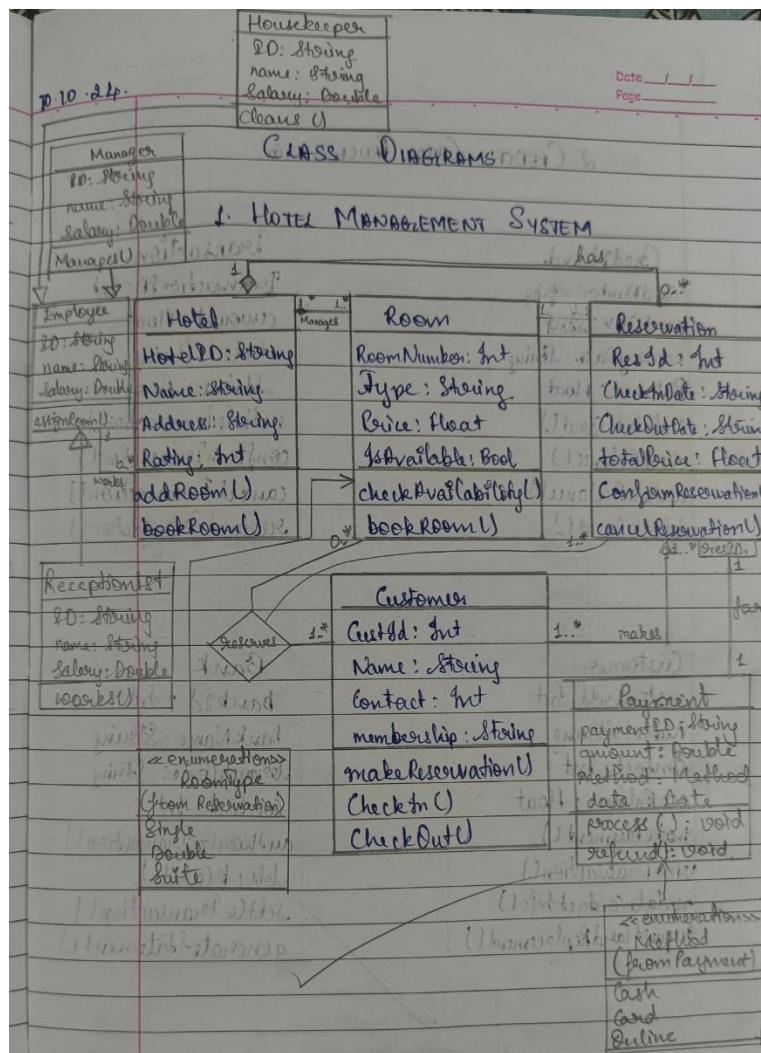 Housekeeper
ID: String
name: String
Salary: Double
Cleans ()
Date
Page
10.10.24.
CLASS DIAGRAMS
Manager
ID: String
name: String
Salary: Double
Manages()
1. HOTEL MANAGEMENT SYSTEM
has
1
0..*
Employee
ID: String
name: String
Salary: Double
assignRoom():
1
works
Hotel
HotelID: String
Name: String
Address: String
Rating: Int
addRoom()
bookRoom()
1..* 1..*
Manages
Room
RoomNumber: Int
Type: String
Price: Float
IsAvailable: Bool
checkAvailability()
bookRoom()
0..*
Reservation
ResId: Int
CheckInDate: String
CheckOutDate: String
totalPrice: Float
ConfirmReservation()
cancelReservation()
1..*
1..*
ResID.
1
for
1
Receptionist
ID: String
name: String
Salary: Double
works()
reserves
1..*
Customer
CustId: Int
Name: String
Contact: Int
membership: String
makeReservation()
CheckIn()
CheckOut()
1..*
makes
Payment
paymentID: String
amount: Double
method: Method
data: Date
process(): void
refund(): void
<<enumerations>>
RoomType
(from Reservation)
Single
Double
Suite
<<enumerations>>
Method
(from Payment)
Cash
Card
Online